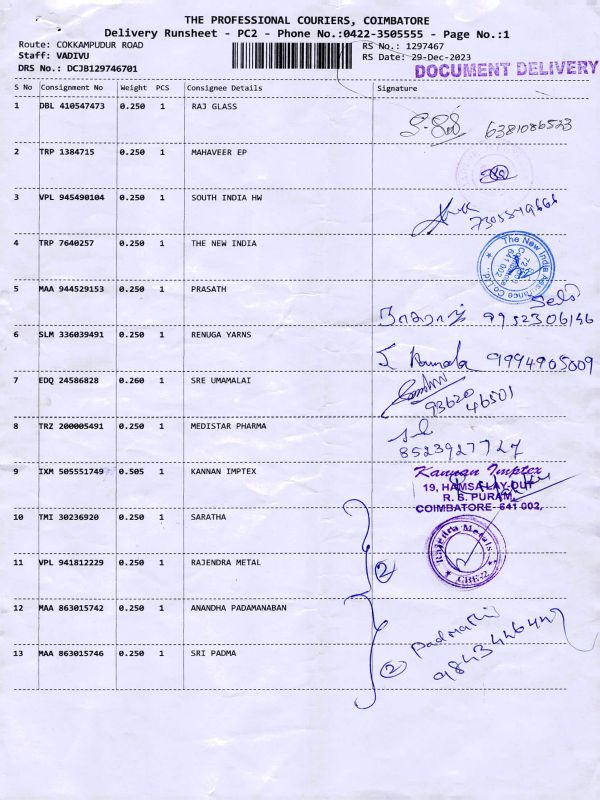 THE PROFESSIONAL COURIERS, COIMBATORE
Delivery Runsheet - PC2 - Phone No.:0422-3505555 - Page No.:1
Route: COKKAMPUDUR ROAD
Staff: VADIVU
DRS No.: DCJB129746701
RS No.: 1297467
RS Date: 29-Dec-2023
DOCUMENT DELIVERY
S No Consignment No Weight PCS Consignee Details Signature
1 DBL 410547473 0.250 1 RAJ GLASS
6381086533
2 TRP 1384715 0.250 1 MAHAVEER EP
3 VPL 945490104 0.250 1 SOUTH INDIA HW
7305549666
4 TRP 7640257 0.250 1 THE NEW INDIA
The New India Assurance Co Ltd.
5 MAA 944529153 0.250 1 PRASATH
நாகராஜ் 9952306146
6 SLM 336039491 0.250 1 RENUGA YARNS
Kamala 9994905009
7 EDQ 24586828 0.260 1 SRE UMAMALAI
93620
46501
8 TRZ 200005491 0.250 1 MEDISTAR PHARMA
8523927727
9 IXM 505551749 0.505 1 KANNAN IMPTEX
Kannan Imptex
19, HAMSA LAY-OUT
R. S. PURAM,
COIMBATORE- 641 002,
10 TMI 30236920 0.250 1 SARATHA
11 VPL 941812229 0.250 1 RAJENDRA METAL
Rajendra Metals
CBE-2
2
12 MAA 863015742 0.250 1 ANANDHA PADAMANABAN
13 MAA 863015746 0.250 1 SRI PADMA
2 Padmathi
9843446447